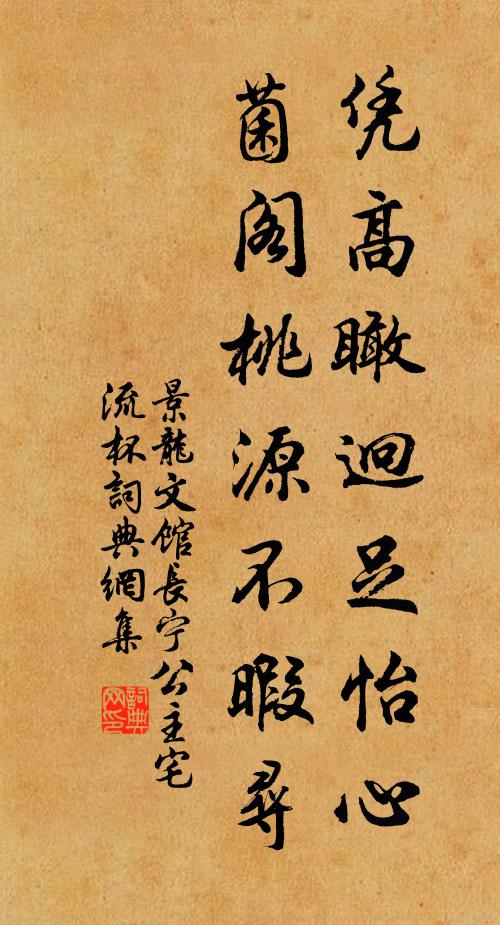 凭高瞰迥足怡心
菌阁桃源不暇寻
景龍文馆長宁公主宅
流杯詞典網集
詞典
网印